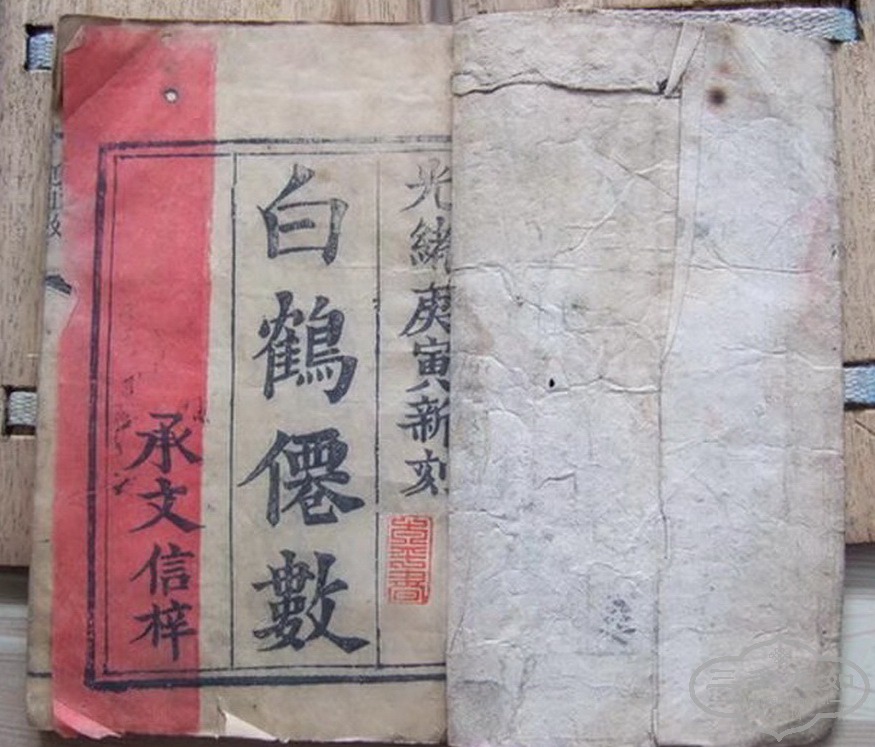 光緒庚寅新刻
白鶴僊數
承文信梓